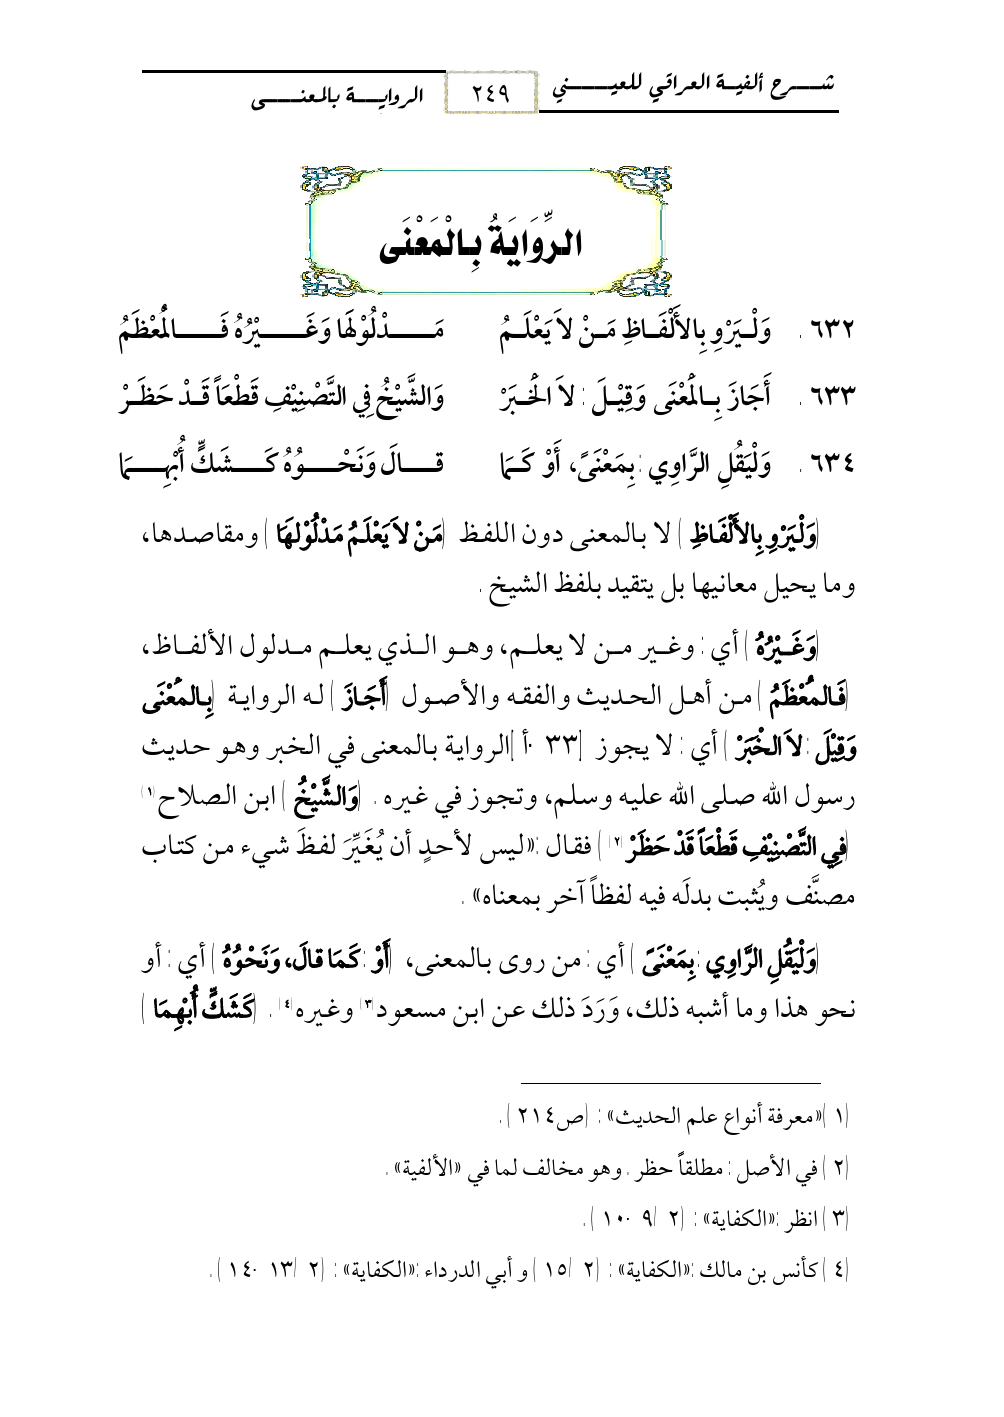 شرح ألفية العراقي للعيني ٢٤٩ الرواية بالمعنى
الرِّوَايَةُ بِالْمَعْنَى
٦٣٢. وَلْيَرْوِ بِالأَلْفَاظِ مَنْ لاَ يَعْلَمُ مَدْلُوْلَهَا وَغَيْرُهُ فَالمُعْظَمُ
٦٣٣. أَجَازَ بِالمَعْنَى وَقِيْلَ: لاَ الخَبَرْ وَالشَّيْخُ فِي التَّصْنِيْفِ قَطْعَاً قَدْ حَظَرْ
٦٣٤. وَلْيَقُلِ الرَّاوِي: بِمَعْنَىً، أَوْ كَمَا قالَ وَنَحْوُهُ كَشَكٍّ أُبْهِمَا
(وَلْيَرْوِ بِالأَلْفَاظِ) لا بالمعنى دون اللفظ (مَنْ لاَ يَعْلَمُ مَدْلُوْلهَا) ومقاصدها،
وما يحيل معانيها بل يتقيد بلفظ الشيخ.
(وَغَيْرُهُ) أي: وغير من لا يعلم، وهو الذي يعلم مدلول الألفاظ،
(فَالمُعْظَمُ) من أهل الحديث والفقه والأصول (أَجَازَ) له الرواية (بِالمَعْنَى
وَقِيْلَ: لاَ الخْبَرْ) أي: لا يجوز [٣٣٠أ] الرواية بالمعنى في الخبر وهو حديث
رسول الله صلى الله عليه وسلم، وتجوز في غيره. (وَالشَّيْخُ) ابن الصلاح(١)
(فِي التَّصْنِيْفِ قَطْعَاً قَدْ حَظَرْ(٢)) فقال: «ليس لأحدٍ أن يُغَيِّرَ لفظَ شيء من كتاب
مصنَّف ويُثبت بدلَه فيه لفظاً آخر بمعناه».
(وَلْيَقُلِ الرَّاوِي: بِمَعْنَىً) أي: من روى بالمعنى، (أَوْ: كَمَا قالَ، وَنَحْوُهُ) أي: أو
نحو هذا وما أشبه ذلك، وَرَدَ ذلك عن ابن مسعود(٣) وغيره(٤). (كَشَكٍّ أُبْهِمَا)
(١) «معرفة أنواع علم الحديث»: (ص٢١٤).
(٢) في الأصل: مطلقاً حظر. وهو مخالف لما في «الألفية».
(٣) انظر: «الكفاية»: (٢/ ٩-١٠).
(٤) كأنس بن مالك: «الكفاية»: (٢/ ١٥) و أبي الدرداء: «الكفاية»: (٢/ ١٣-١٤).